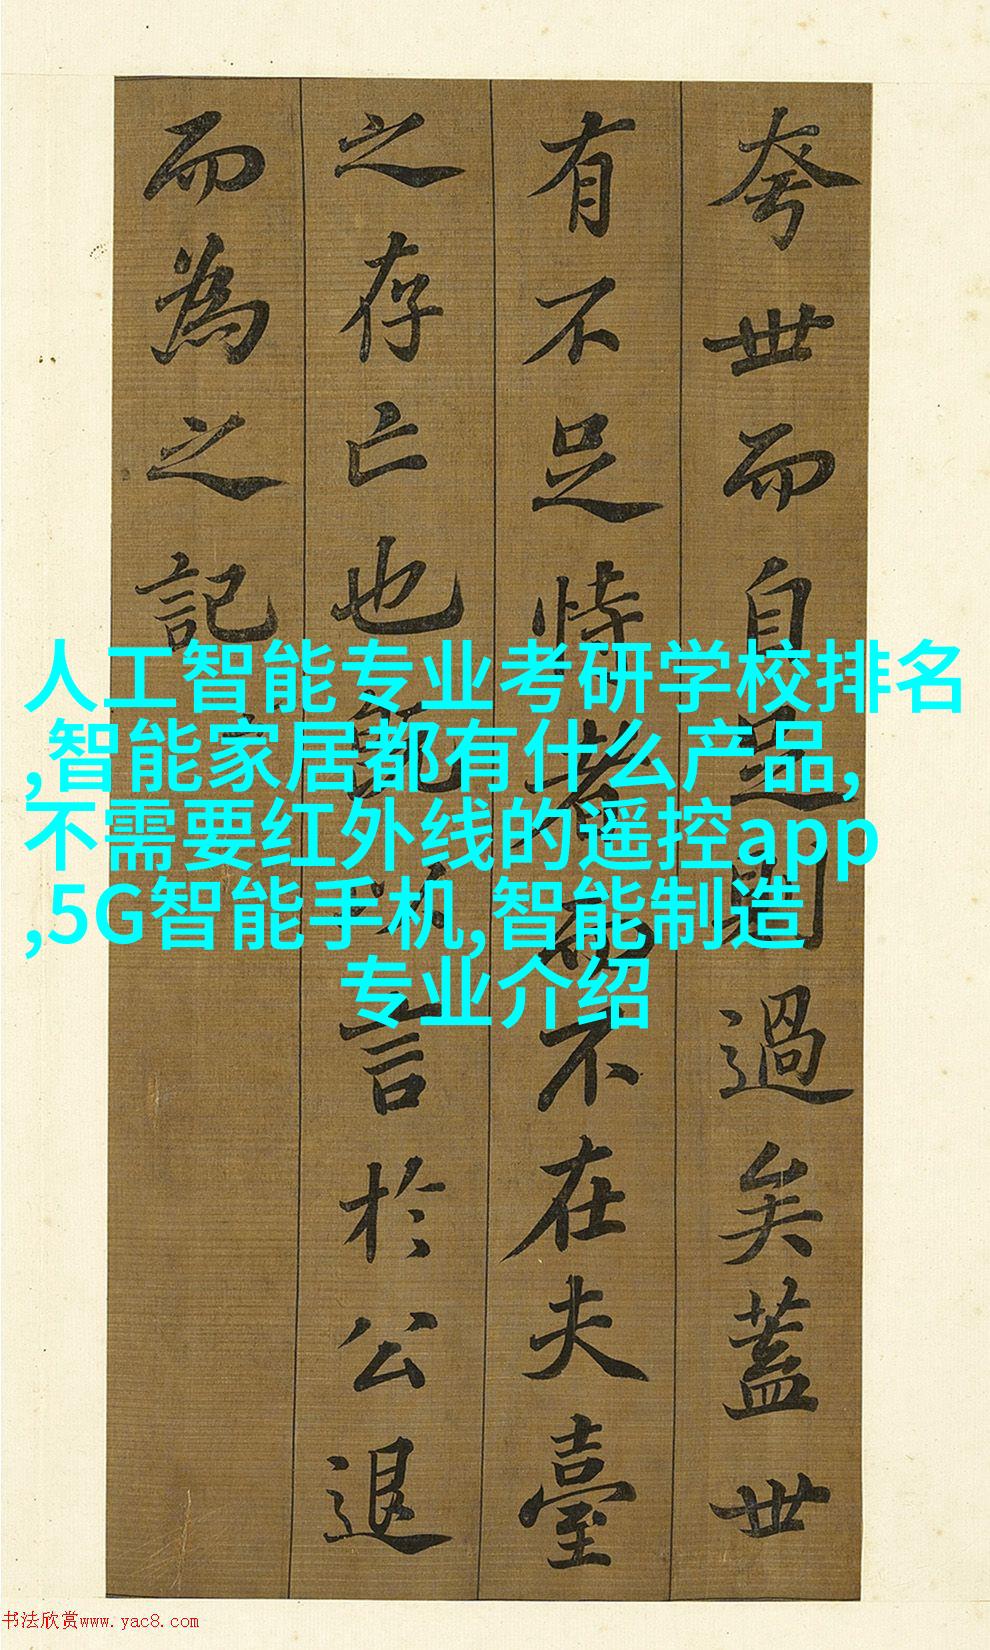 夸世而自足則過矣蓋世
有不足恃者而不在夫臺
之存亡也既以言於公退
而為之記
人工智能专业考研学校排名
,智能家居都有什么产品,
不需要红外线的遥控app
,5G智能手机,智能制造
专业介绍
书法欣赏www.yac8.com